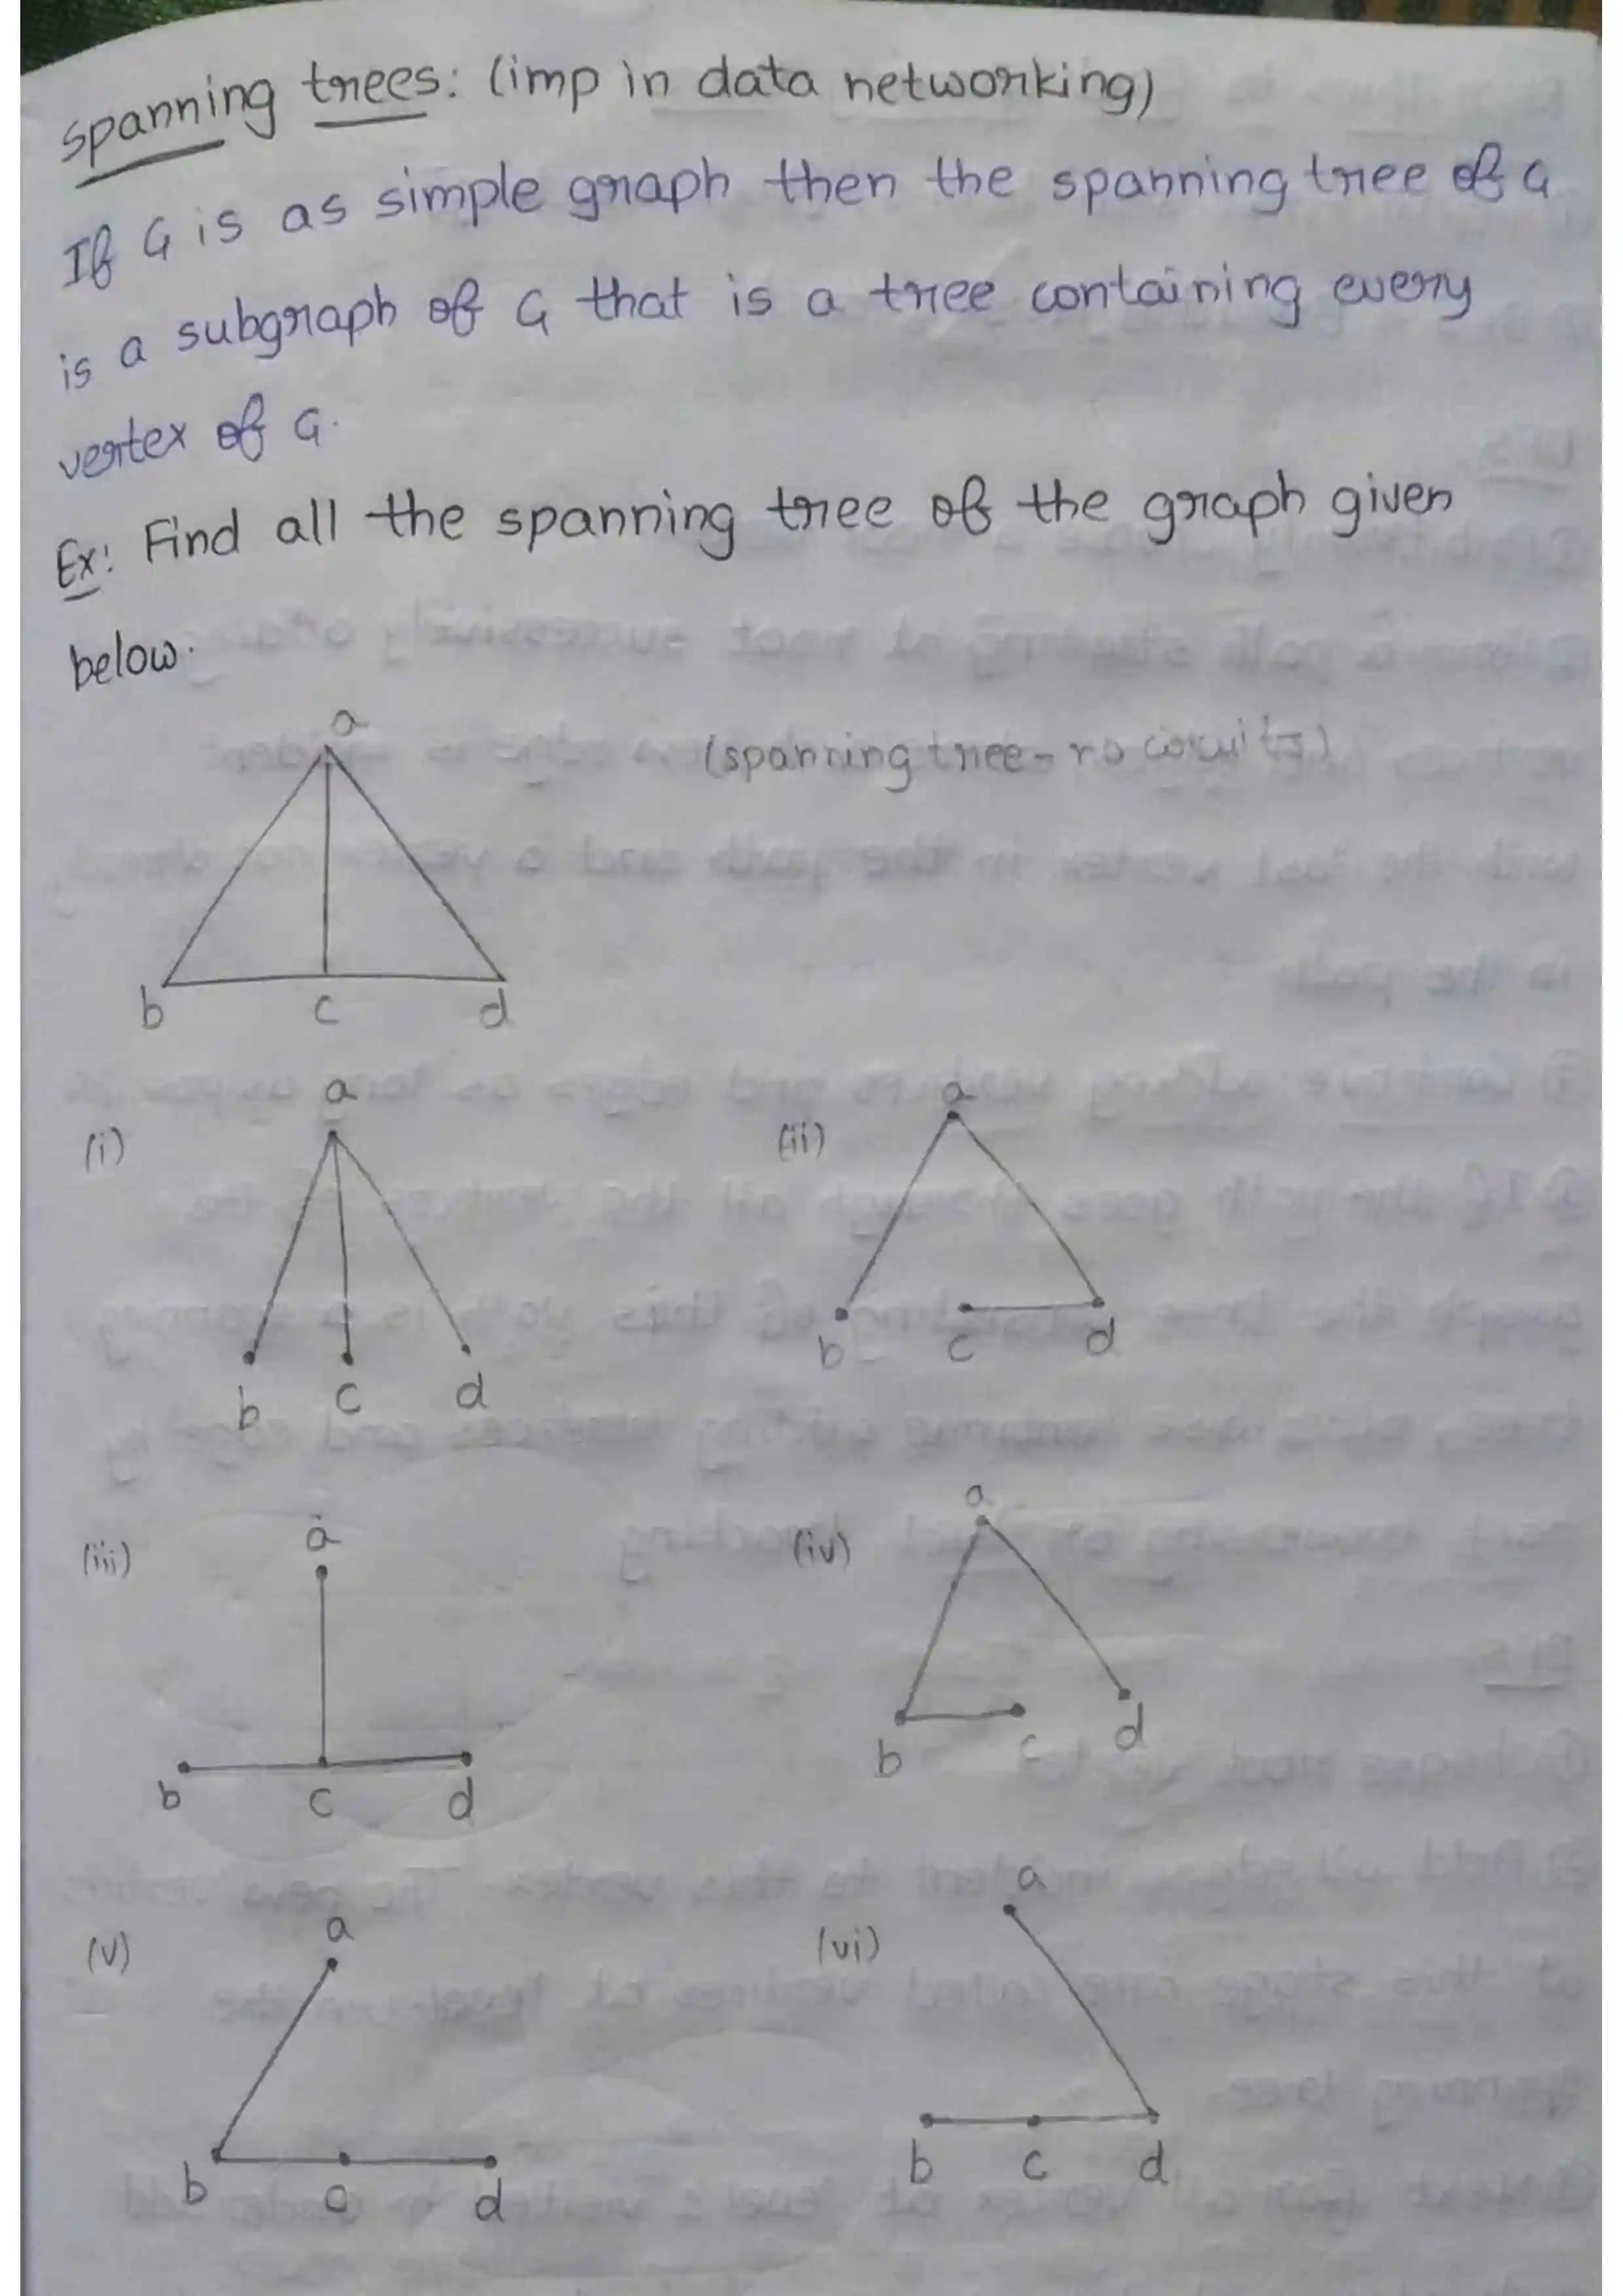 spanning trees: (imp in data networking)
If G is as simple graph then the spanning tree of G
is a subgraph of G that is a tree containing every
vertex of G.
Ex: Find all the spanning tree of the graph given
below.
a
(spanning tree - no circuits)
b c d
(i) a
b c d
(ii) a
b c d
(iii) a
b c d
(iv) a
b c d
(v) a
b c d
(vi) a
b c d